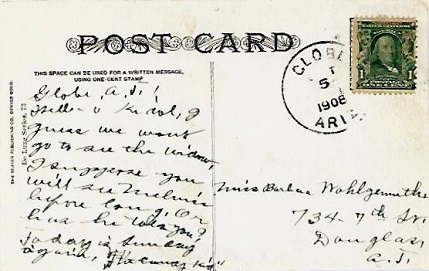 POST CARD
THIS SPACE CAN BE USED FOR A WRITTEN MESSAGE,
USING ONE-CENT STAMP
Globe, A.T.!
guess we wont
go to see the widow,
I suppose you
will see
before long. Or
has he
today is Sunday
again,
GLOBE
5
1908
ARIZ
1
1
Miss Barbara Wohlgemuth
734 7th St.
Douglas,
A.T.